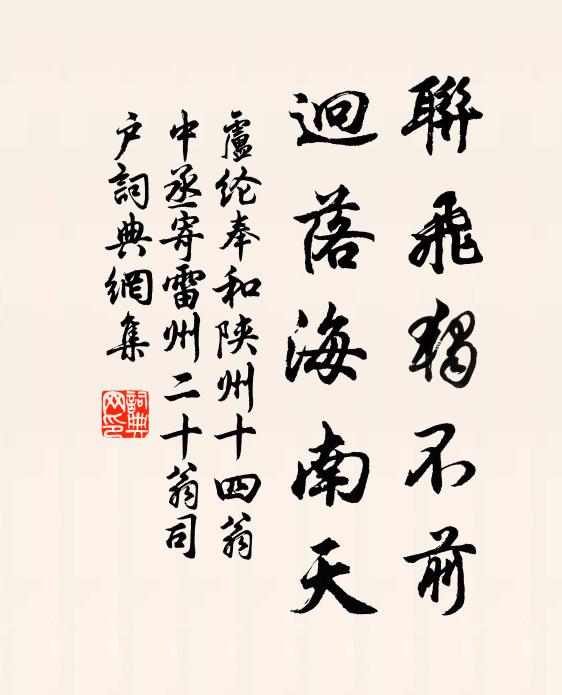 聯飛獨不前
迥落海南天
盧纶奉和陝州十四翁
中丞寄雷州二十翁司
户詞典網集
詞典
网印